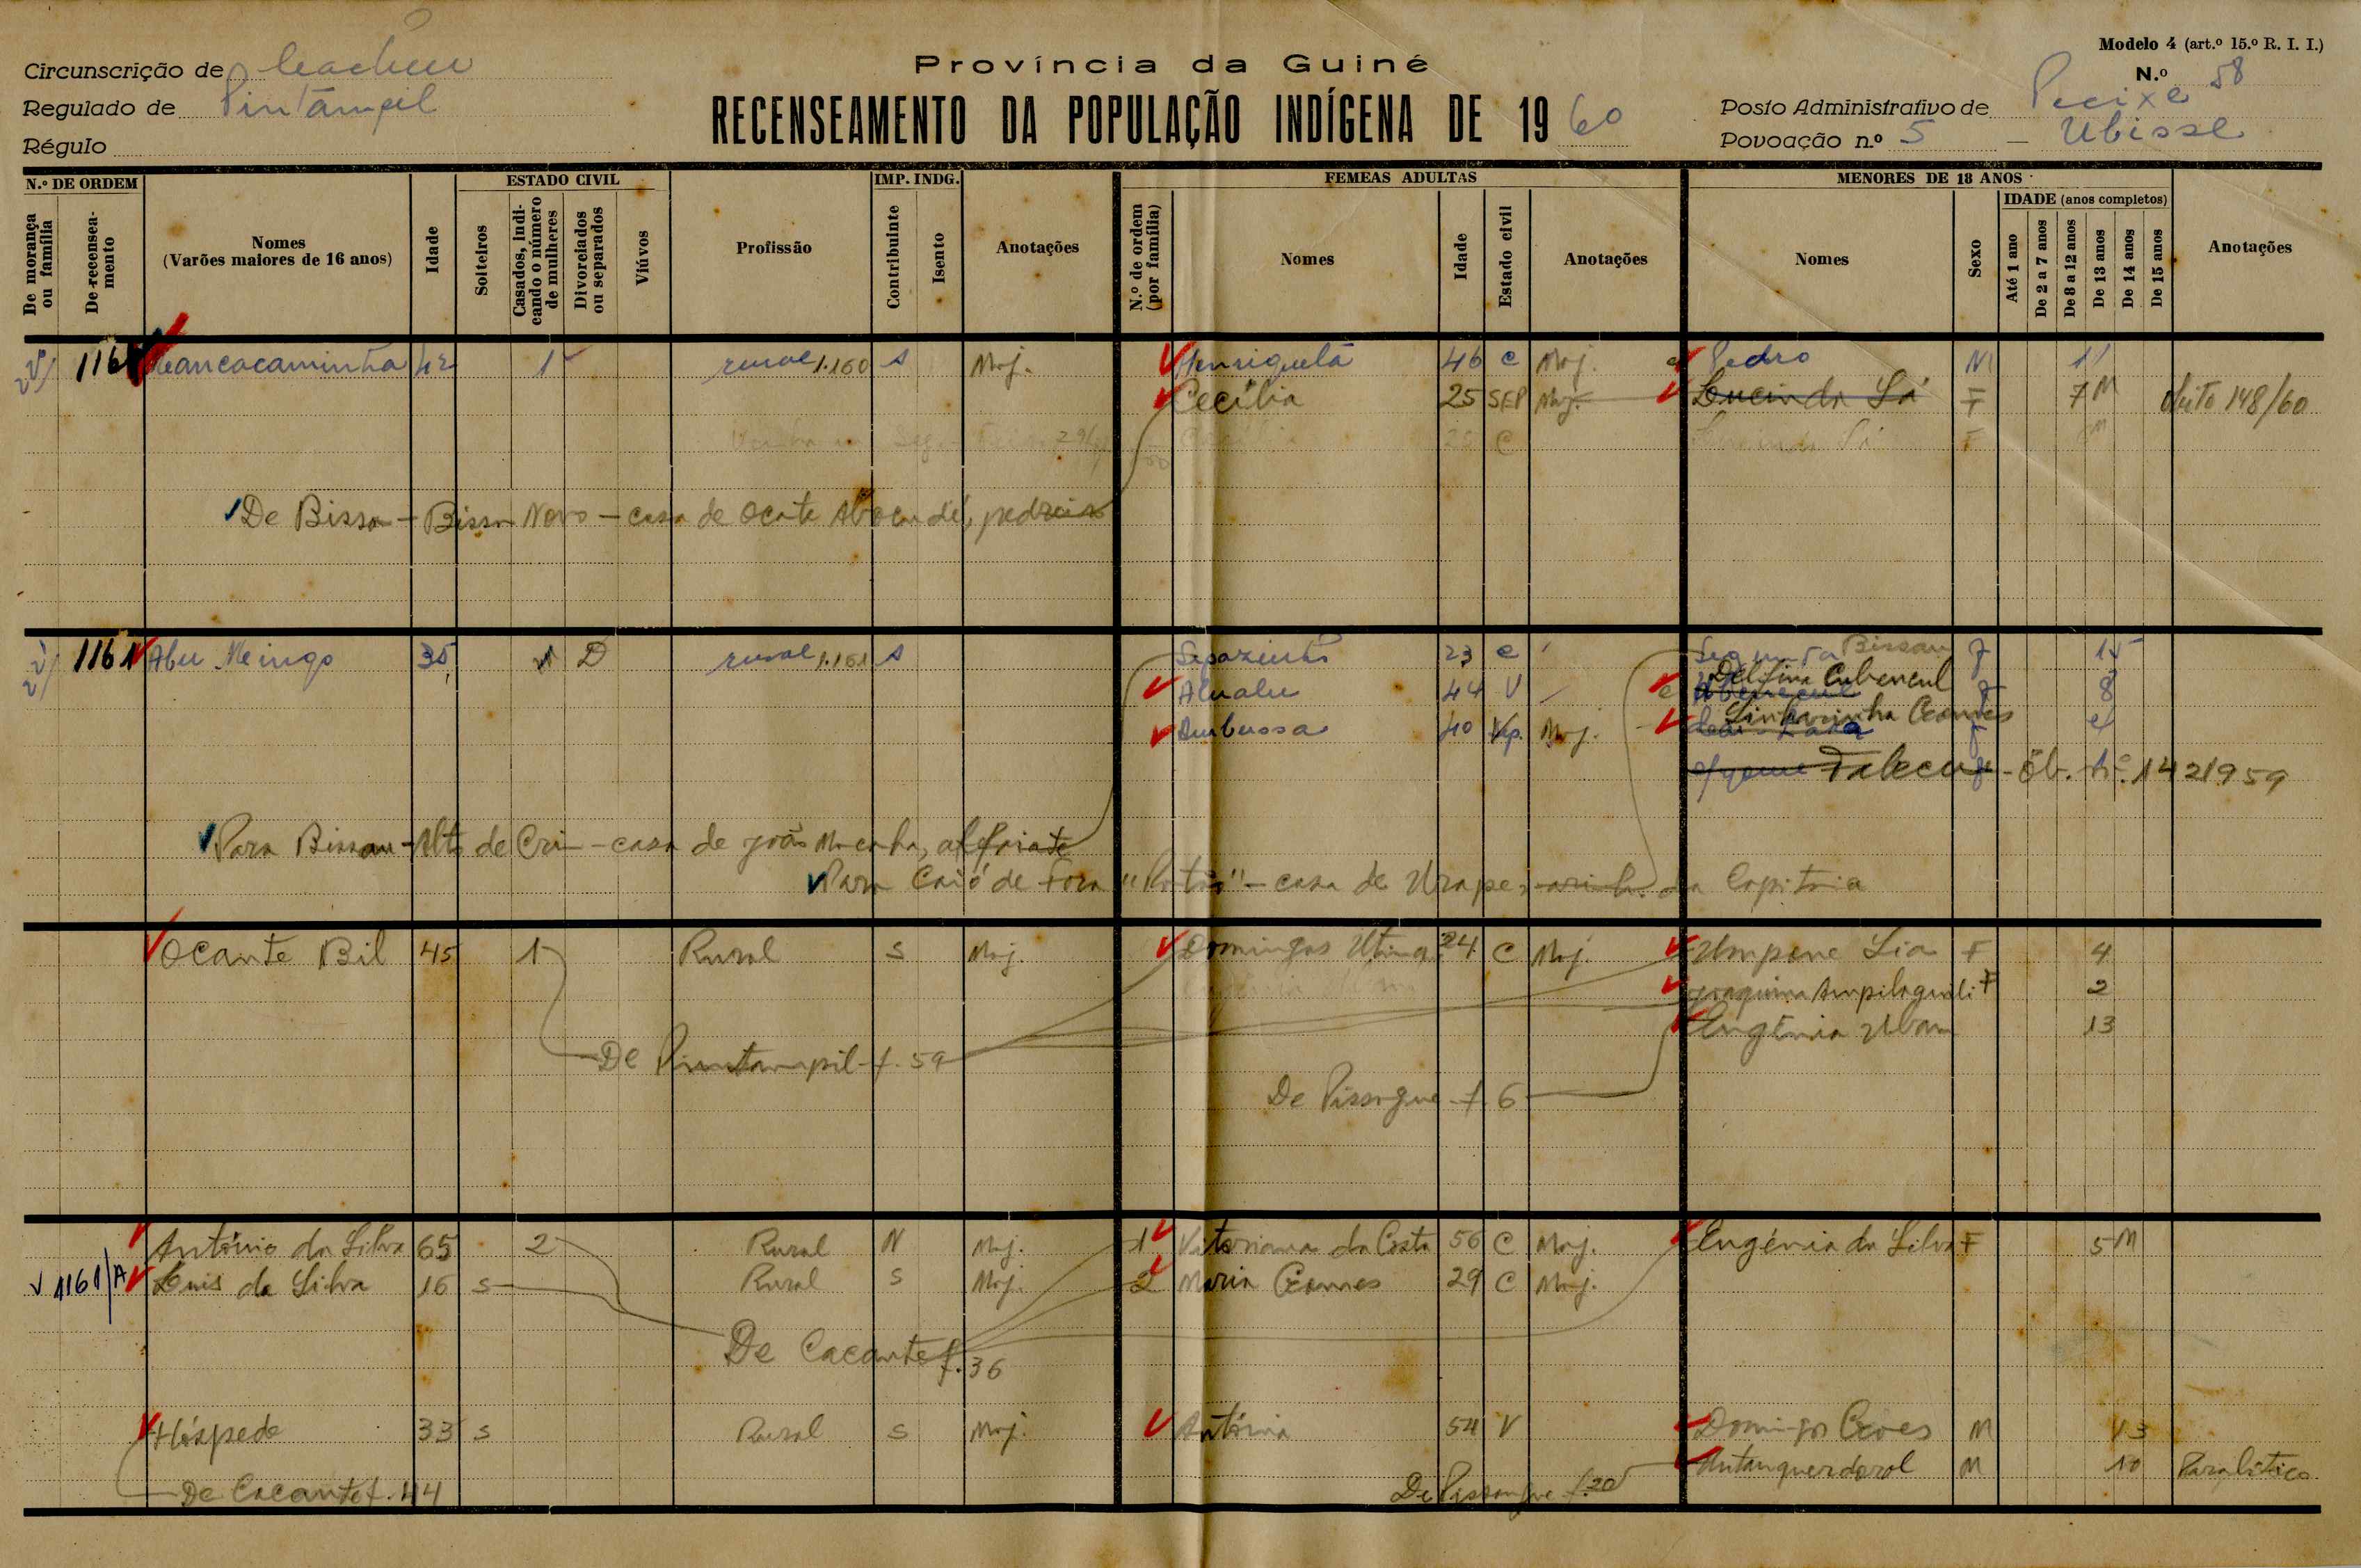 Modelo 4 (art.º 15.º R. I. I.)
Circunscrição de Cacheu
Província da Guiné
N.º 58
Regulado de Pintampil
RECENSEAMENTO DA POPULAÇÃO INDÍGENA DE 19 60
Posto Administrativo de Pecixe
Régulo
Povoação n.º 5 — Ubisse
N.º DE ORDEM
ESTADO CIVIL
IMP. INDG.
FEMEAS ADULTAS
MENORES DE 18 ANOS
De morança ou família
De recenseamento
Nomes (Varões maiores de 16 anos)
Idade
Solteiros
Casados, indicando o número de mulheres
Divorciados ou separados
Viúvos
Profissão
Contribuinte
Isento
Anotações
N.º de ordem (por família)
Nomes
Idade
Estado civil
Anotações
Nomes
Sexo
IDADE (anos completos)
Até 1 ano
De 2 a 7 anos
De 8 a 12 anos
De 13 anos
De 14 anos
De 15 anos
Anotações
116 42 1 rural 1.160 s Maj. Henriqueta 46 c Maj. Pedro M 11
Cecília 25 SEP Maj. Lucinda Sá F 7 M óbito 148/60
De Bissau - Bissau Novo - casa de Ocante pedreiro
1161 Abu Meingo 35 D rural 1.161 s 23 c Segunda Bissau F 15
Alualu 44 V Delfina Cubencul 8
Umbussa 40 Maj. Linharinha Gomes
Faleceu - Ób. n.º 142/959
Para Bissau - Alto de Crim - casa de João alfaiate
Para Caió de Fora - casa de da Capitania
Ocante Bil 45 1 Rural S Maj. Domingas Utinga 24 C Maj. Umpone Sia F 4
Joaquina Ampilaguili F 2
Eugénia Ubam 13
De Pintampil f. 59
De Pissangue f. 6
António da Silva 65 2 Rural N Maj. 1 Vitoriana da Costa 56 C Maj. Eugénia da Silva F 5 M
1161/A Luis da Silva 16 S Rural S Maj. 2 Maria Gomes 29 C Maj.
De Cacante f. 36
Hóspede 33 S Rural S Maj. Antónia 54 V Domingos Goes M 13
M 10 Paralítico
De Cacante f. 44
De Pissangue f. 20